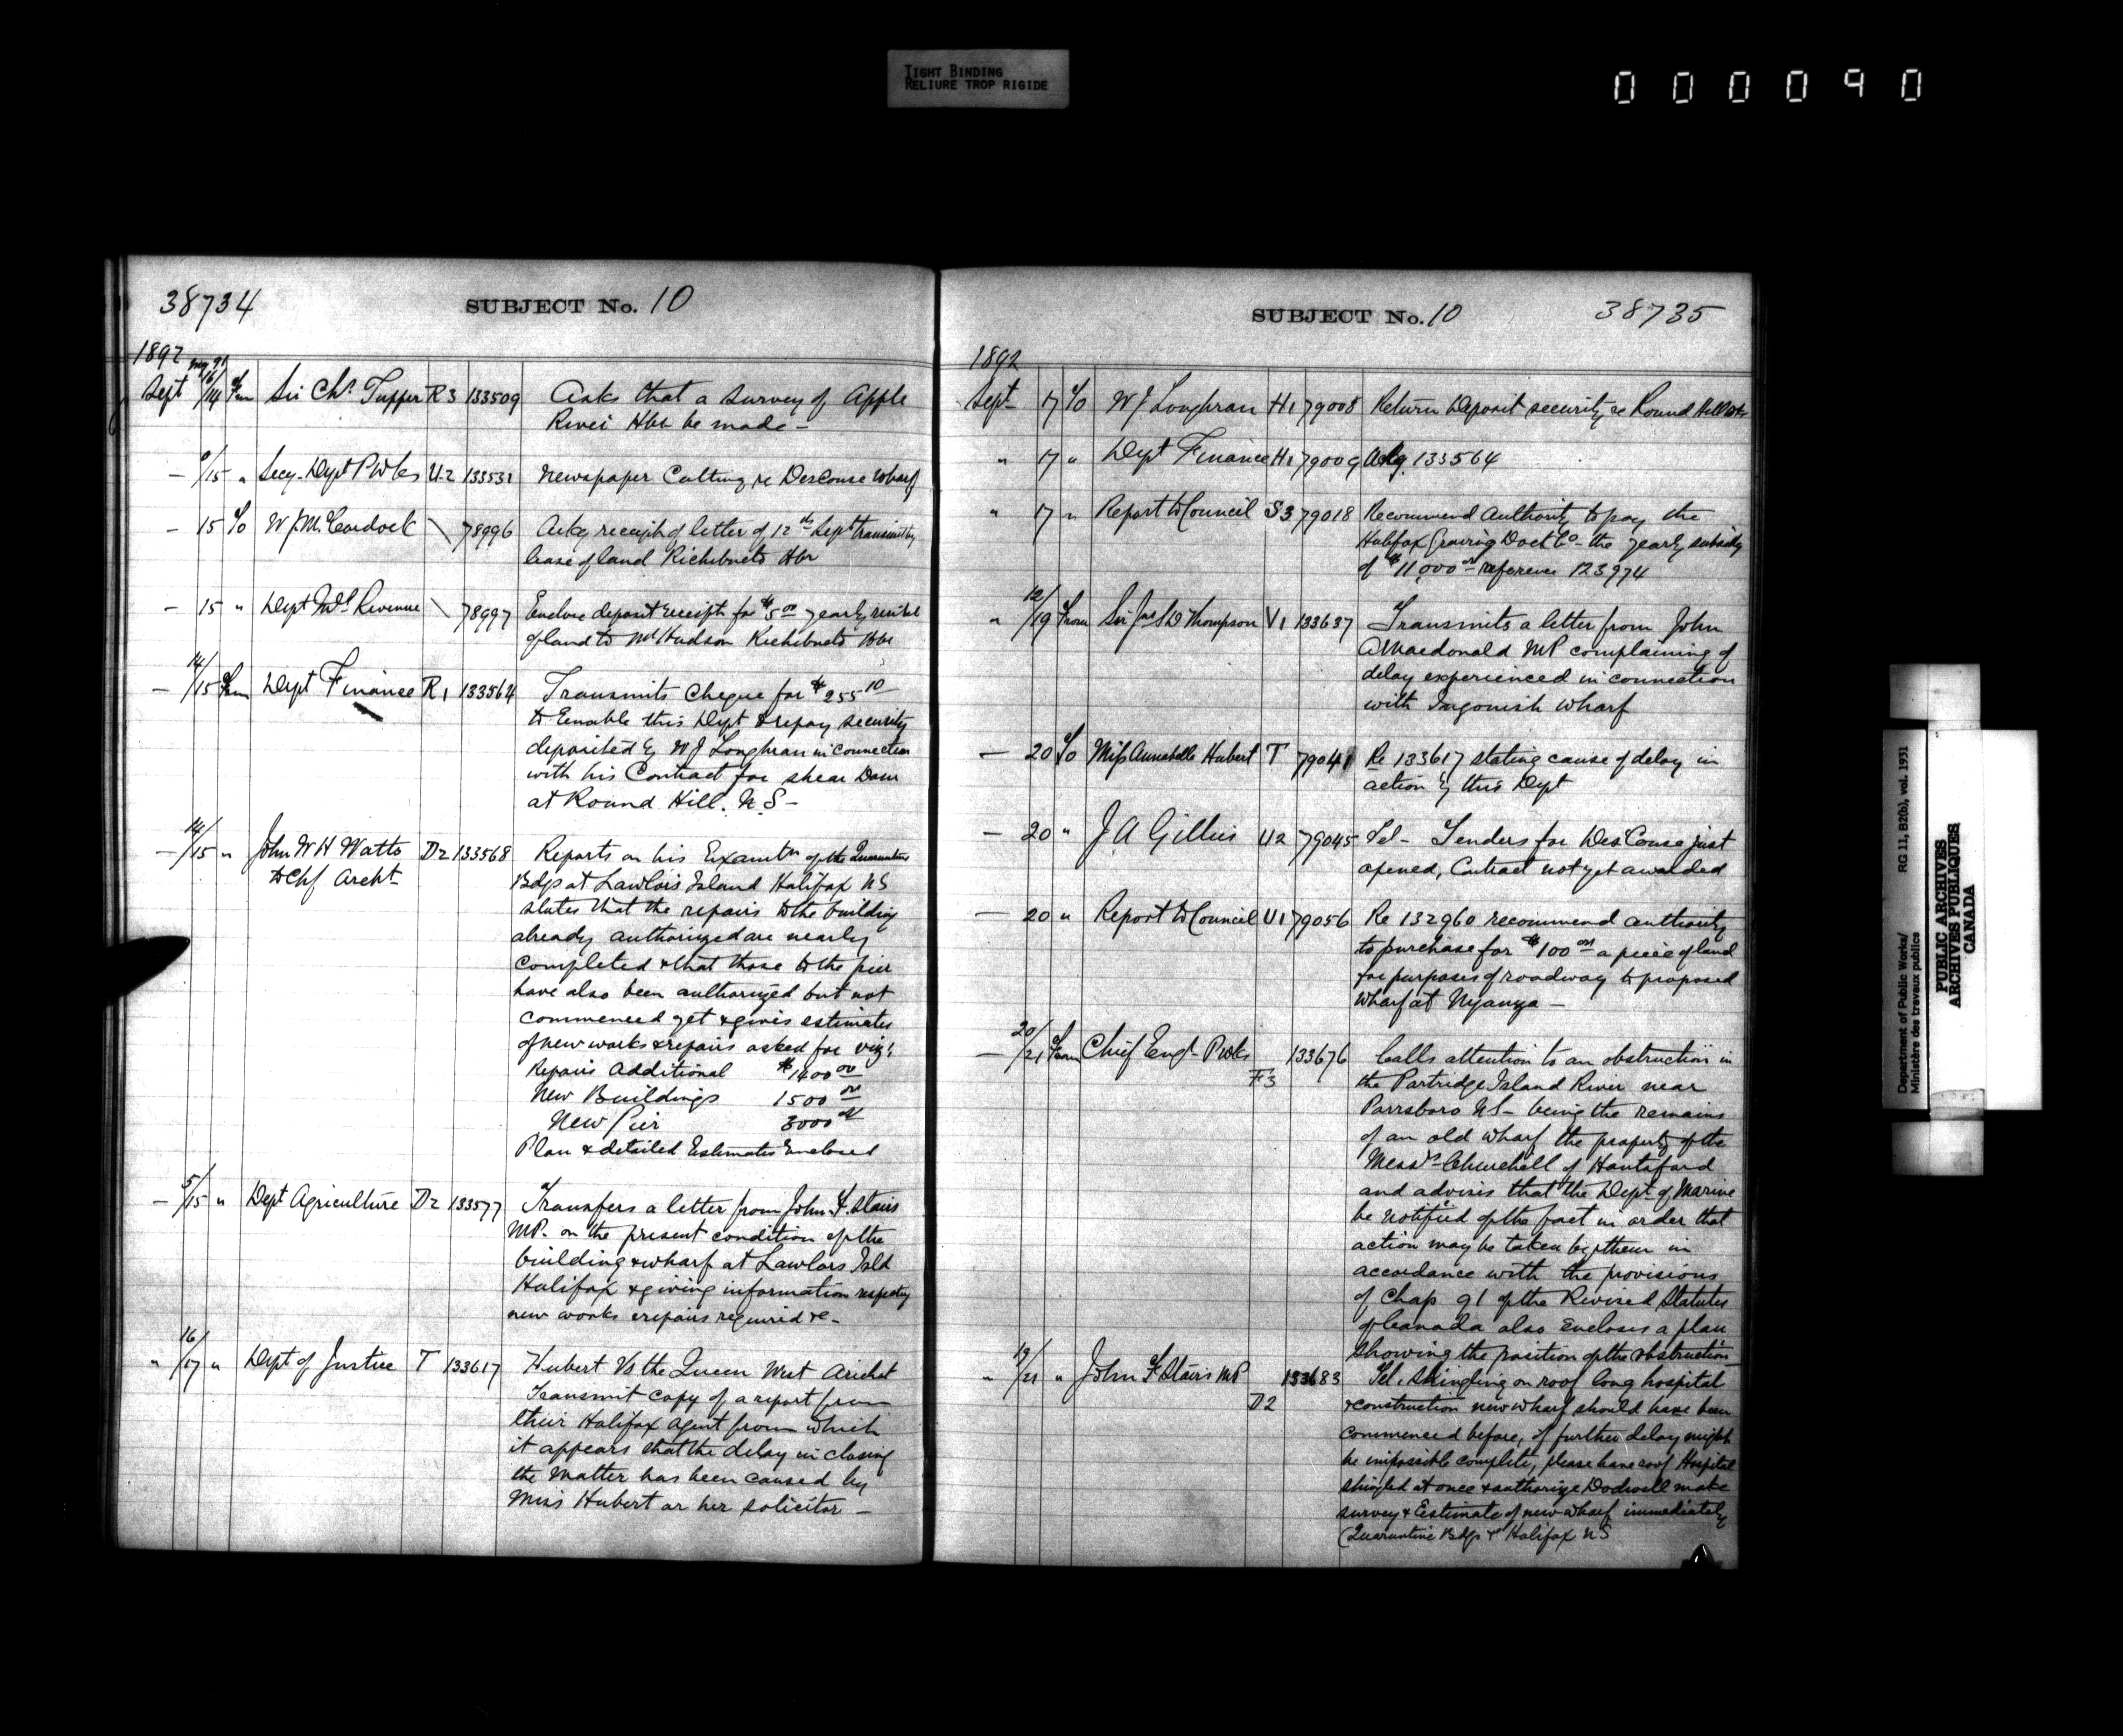 TIGHT BINDING
RELIURE TROP RIGIDE
000090
38734
SUBJECT No. 10
1892
Sept 16/14 Fm Sir Chs. Tupper R3 133509 Asks that a survey of Apple
River Hbr be made -
- 9/15 " Secy. Dept P Wks U.2 133531 Newspaper Cutting re DesCouse Wharf
- 15 To W J McCordock \ 78996 Ackg receipt of letter of 12th Sept transmitting
lease of land Richibucto Hbr
- 15 " Dept Inld Revenue \ 78997 Enclose deposit receipt for $5.00 yearly rental
of land to Hudson Richibucto Hbr
- 14/15 From Dept Finance R1 133564 Transmits cheque for $255 10
to Enable this Dept to repay security
deposited by W J Loughran in connection
with his Contract for shear Dam
at Round Hill. N.S -
- 14/15 " John W H Watts D2 133568 Reports on his Examtn of the Quarantine
to Chf Archt Bdgs at Lawlors Island Halifax NS
states that the repairs to the building
already authorized are nearly
completed & that those to the pier
have also been authorized but not
commenced yet & gives estimates
of new works & repairs asked for viz:
Repairs Additional $1400 00
New Buildings 1500 00
New Pier 3000 00
Plan & detailed Estimates Enclosed
- 5/15 " Dept Agriculture D2 133577 Transfers a letter from John F. Stairs
MP. on the present condition of the
building & wharf at Lawlors Isld
Halifax & giving information respecting
new works & repairs required &c -
" 16/17 " Dept of Justice T 133617 Hubert Vs the Queen West Arichat
Transmit copy of a report from
their Halifax Agent from which
it appears that the delay in closing
the Matter has been caused by
Miss Hubert or her solicitor -
SUBJECT No. 10
38735
1892
Sept 17 To W J Loughran H1 79008 Return Deposit security re Round Hill
" 17 " Dept Finance H1 79009 Ackg. 133564
" 17 " Report to Council S3 79018 Recommend Authority to pay the
Halifax Graving Dock Co - the yearly subsidy
of $11,000 00 reference 123974
" 12/19 From Sir Jno S D Thompson V1 133637 Transmits a letter from John
A Macdonald MP complaining of
delay experienced in connection
with Ingonish Wharf
- 20 To Miss Annabelle Hubert T 79041 Re 133617 stating cause of delay in
action by this Dept
- 20 " J. A Gillies U2 79045 Tel - Tenders for DesCouse just
opened, Contract not yet awarded
- 20 " Report to Council U1 79056 Re 132960 recommend authority
to purchase for $100 00 a piece of land
for purposes of roadway to proposed
wharf at Nyanza -
- 20/21 From Chief Engr P Wks F3 133676 Calls attention to an obstruction in
the Partridge Island River near
Parrsboro NS - being the remains
of an old wharf the property of the
Messrs Churchill of Hantsford
and advises that the Dept of Marine
be notified of the fact in order that
action may be taken by them in
accordance with the provisions
of Chap 91 of the Revised Statutes
of Canada also Encloses a plan
showing the position of the obstruction
" 19/21 " John F Stairs MP D2 133683 Tel. Shingling on roof long hospital
& construction new wharf should have been
commenced before, if further delay might
be impossible complete, please have roof Hospital
shingled at once & authorize Dodwell make
survey & Estimate of new wharf immediately
(Quarantine Bdgs &c Halifax NS
Department of Public Works/ RG 11, B2(b), vol. 1931
Ministère des travaux publics
PUBLIC ARCHIVES
ARCHIVES PUBLIQUES
CANADA